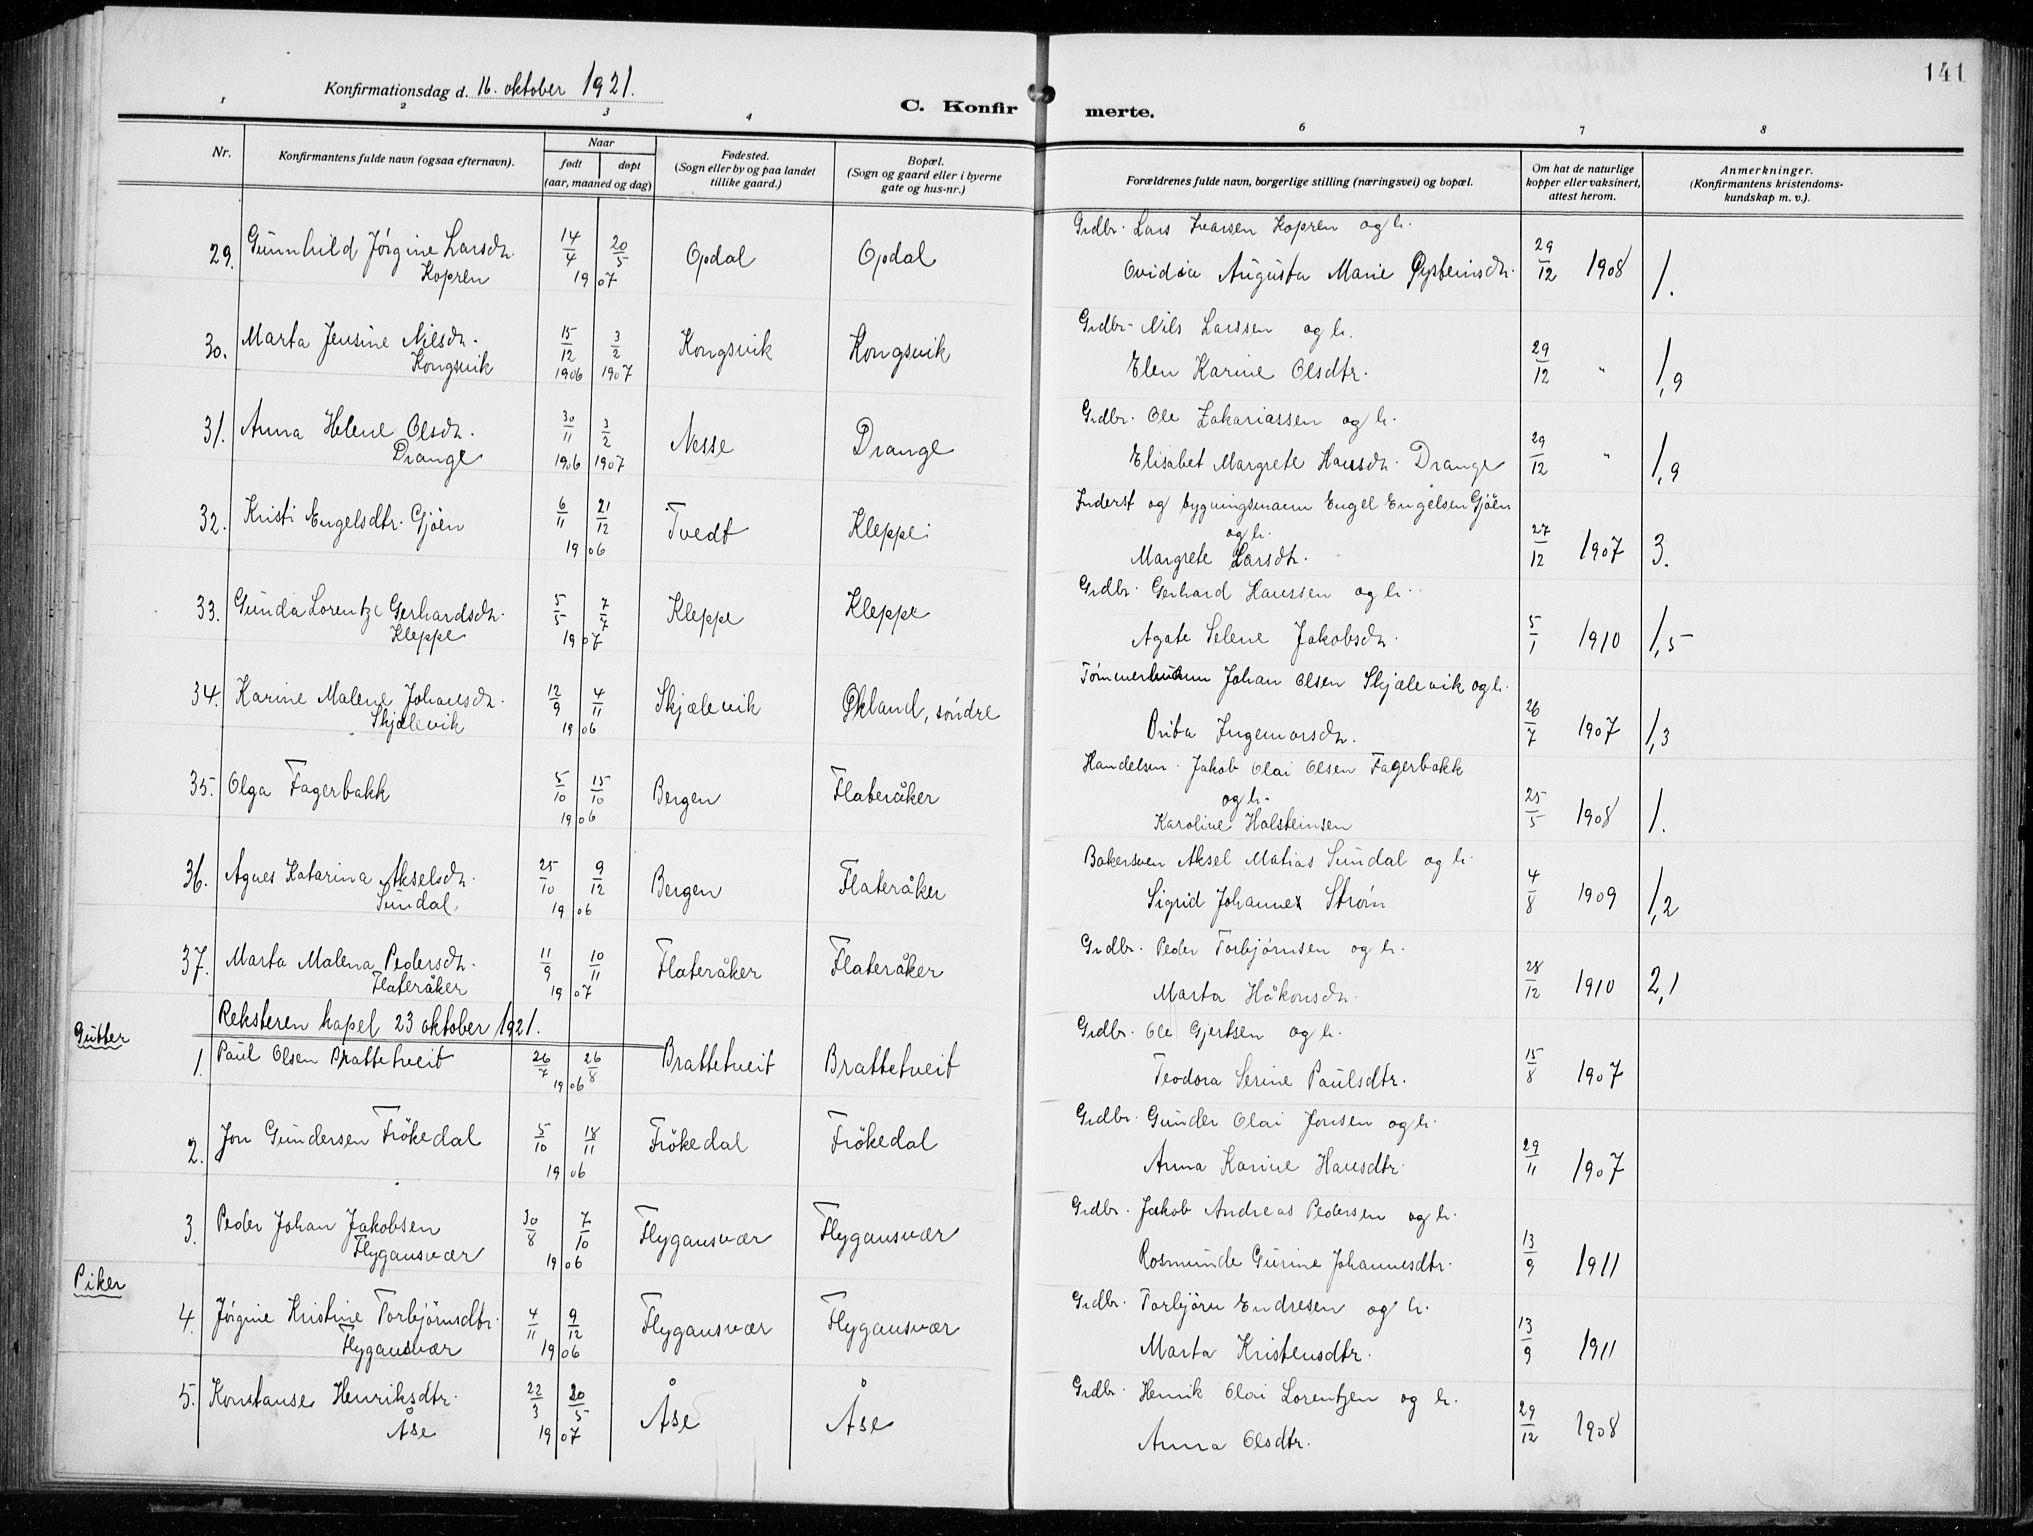 141
Konfirmationsdag d. 16. oktober 1921.
C. Konfirmerte.
1 2 3 4 6 7 8
Nr.
Konfirmantens fulde navn (ogsaa efternavn).
Naar
født døpt
(aar, maaned og dag)
Fødested.
(Sogn eller by og paa landet
tillike gaard.)
Bopæl.
(Sogn og gaard eller i byerne
gate og hus-nr.)
Forældrenes fulde navn, borgerlige stilling (næringsvei) og bopæl.
Om hat de naturlige
kopper eller vaksinert,
attest herom.
Anmerkninger.
(Konfirmantens kristendoms-
kundskap m. v.).
Grdbr. Lars Ivarsen Kopren og h.
29. Gunnhild Jörgine Larsdtr. 14/4 20/5 Opdal Opdal
Kopren 1907
Ovidia Augusta Marie Øysteinsdtr. 29/12 1908 1.
Grdbr. Nils Larssen og h.
30. Marta Jensine Nilsdtr. 15/12 3/2 Kongsvik Kongsvik
Kongsvik 1906 1907
Elen Karine Olsdtr. 29/12 " 1,9
Grdbr. Ole Zakariassen og h.
31. Anna Helene Olsdtr. 30/11 3/2 Nesse Drange
Drange 1906 1907
Elisabet Margrete Hansdtr. Drange 29/12 " 1,9
Inderst og bygningsmann Engel Engelsen Gjöen
og h.
32. Kristi Engelsdtr. Gjöen 6/11 21/12 Tvedt Kleppe
1906
Margrete Larsdtr. 27/12 1907 3.
Grdbr. Gerhard Hanssen og h.
33. Gunda Lorentze Gerhardsdtr. 5/5 7/7 Kleppe Kleppe
Kleppe 1907
Agate Selene Jakobsdtr. 5/1 1910 1,5
Tömmermann Johan Olsen Skjælevik og h.
34. Karine Malene Johansdtr. 12/9 4/11 Skjælevik Økland, söndre
Skjælevik 1906
Brita Ingemarsdtr. 26/7 1907 1,3
Handelsm. Jakob Olai Olsen Fagerbakk
og h.
35. Olga Fagerbakk 5/10 15/10 Bergen Flateråker
1906
Karoline Holsteinsen 25/5 1908 1.
Bakersven Aksel Matias Sundal og h.
36. Agnes Katarina Akselsdtr. 25/10 9/12 Bergen Flateråker
Sundal 1906
Sigrid Johanne Ström 4/8 1909 1,2
Grdbr. Peder Torbjörnsen og h.
37. Marta Malena Pedersdtr. 11/9 10/11 Flateråker Flateråker
Flateråker 1907
Marta Håkonsdtr. 28/12 1910 2,1
Reksteren kapel 23 oktober 1921.
Gutter
Grdbr. Ole Gjertsen og h.
1. Paul Olsen Brattetveit 26/7 26/8 Brattetveit Brattetveit
1906
Teodora Serine Paulsdtr. 15/8 1907
Grdbr. Gunder Olai Jonsen og h.
2. Jon Gundersen Frökedal 5/10 18/11 Frökedal Frökedal
1906
Anna Karine Hansdtr. 29/11 1907
Grdbr. Jakob Andreas Pedersen og h.
3. Peder Johan Jakobsen 30/8 7/10 Flygansvær Flygansvær
Flygansvær 1906
Rosmunde Gurine Johannesdtr. 13/9 1911
Piker
Grdbr. Torbjörn Endresen og h.
4. Jörgine Kristine Torbjörnsdtr. 4/11 9/12 Flygansvær Flygansvær
Flygansvær 1906
Marta Kristensdtr. 13/9 1911
Grdbr. Henrik Olai Lorentzen og h.
5. Konstanse Henriksdtr. 22/3 20/5 Åse Åse
Åse 1907
Anna Olsdtr. 29/12 1908